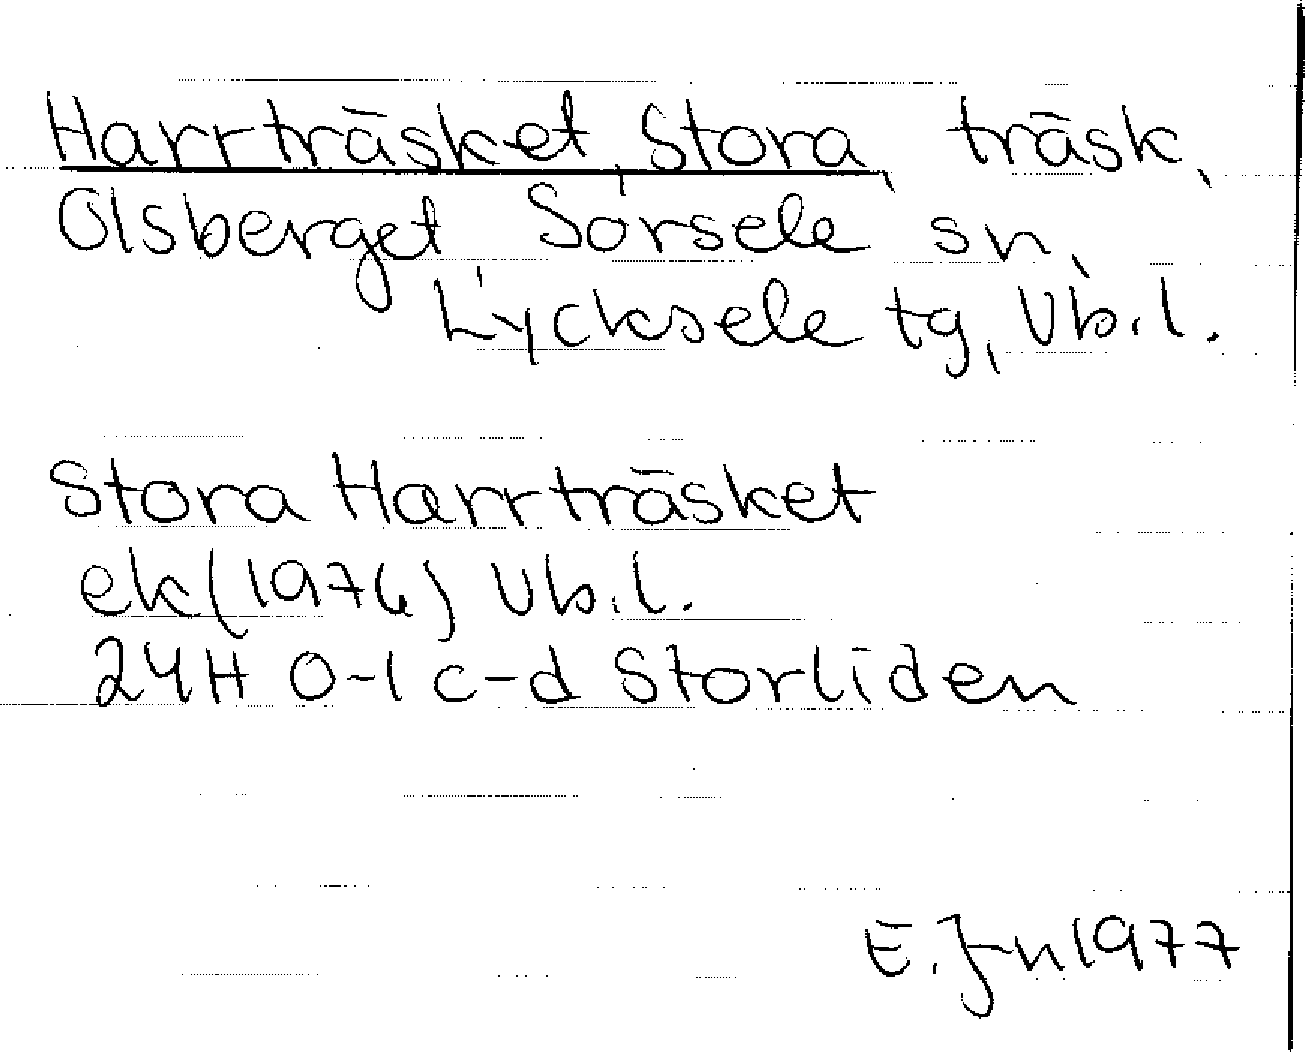 Harrträsket, Stora, träsk,
Olsberget, Sorsele sn,
Lycksele tg, Vb.l.
Stora Harrträsket
ek(1976) Vb.l.
24H 0-1 c-d Storliden
E. Jn 1977